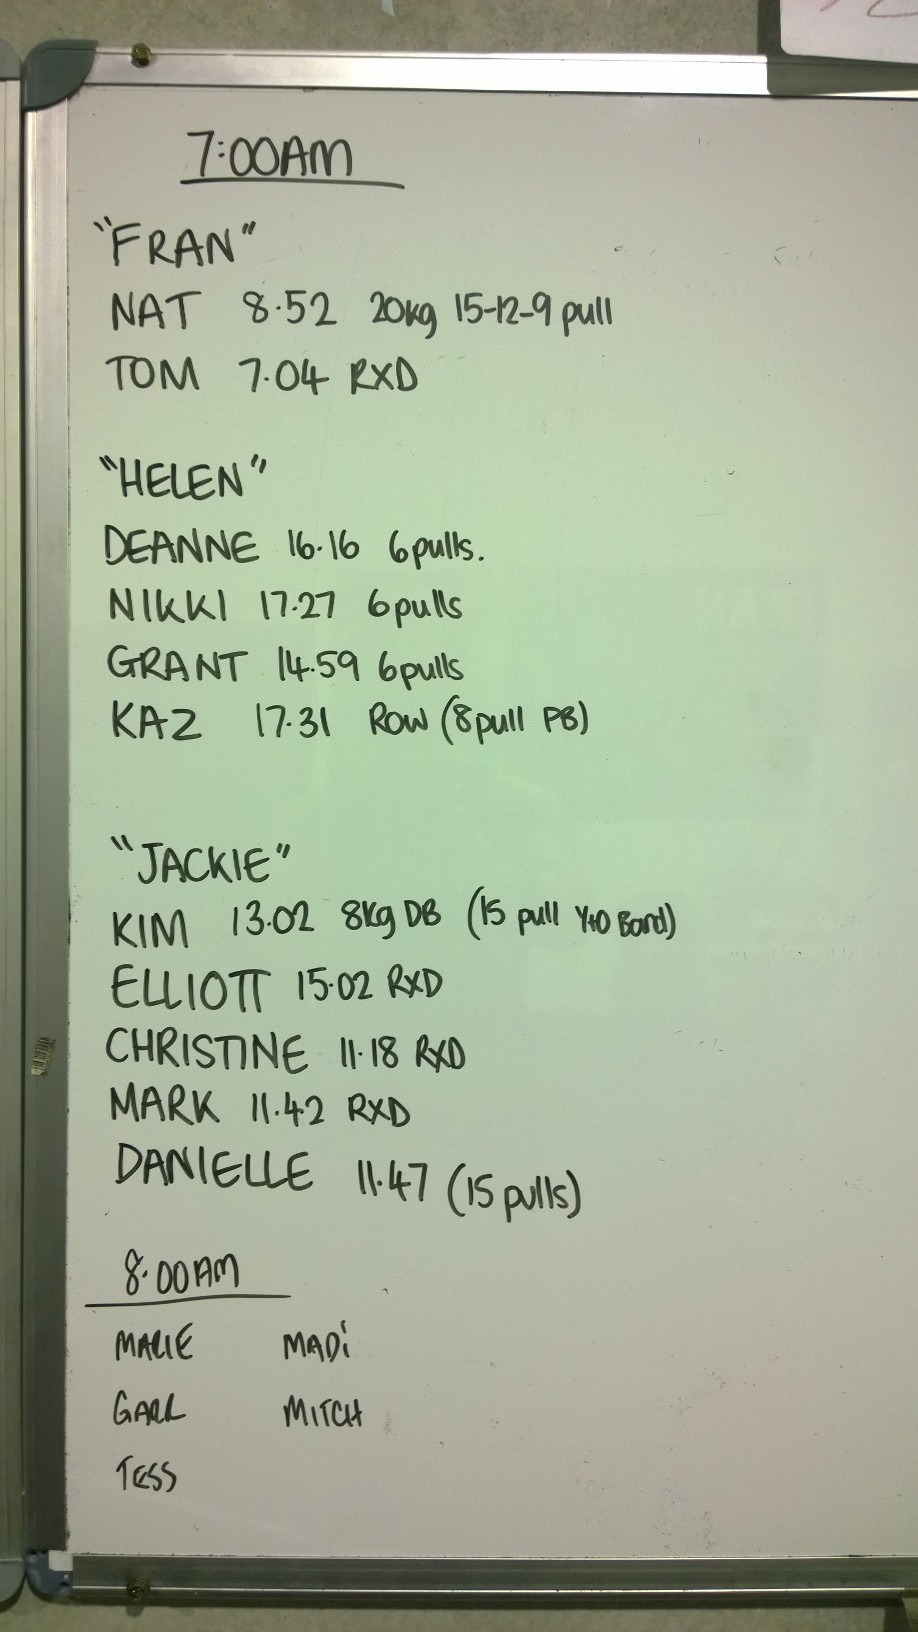 7:00AM
"FRAN"
NAT 8.52 20kg 15-12-9 pull
TOM 7.04 RXD
"HELEN"
DEANNE 16.16 6pulls.
NIKKI 17.27 6pulls
GRANT 14.59 6pulls
KAZ 17.31 ROW (8pull PB)
"JACKIE"
KIM 13.02 8kg DB (15 pull Y+O Band)
ELLIOTT 15.02 RXD
CHRISTINE 11.18 RXD
MARK 11.42 RXD
DANIELLE 11.47 (15 pulls)
8.00AM
MARIE MADi
MITCH
TESS